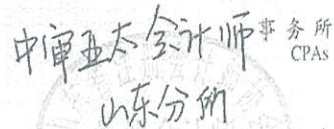 中审亚太会计师事务所
CPAs
山东分所